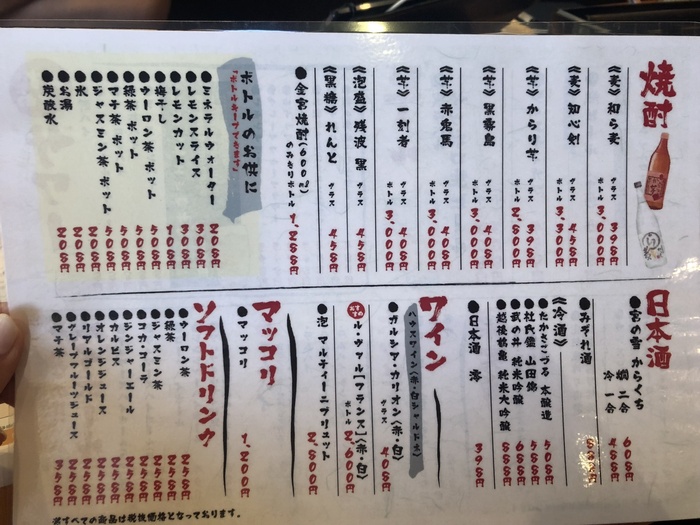 焼酎
《麦》和ら麦 グラス 398円
ボトル 3,000円
《麦》知心剣 グラス 458円
ボトル 3,300円
《芋》からり芋 グラス 398円
ボトル 2,800円
《芋》黒霧島 グラス 408円
ボトル 3,000円
《芋》赤兎馬 グラス 408円
ボトル 3,000円
《芋》一刻者 グラス 408円
ボトル 3,000円
《泡盛》残波 黒 グラス 458円
《黒糖》れんと グラス 458円
●金宮焼酎(600ml)
のみきりボトル 1,288円
ボトルのお供に
「ボトルキープできます」
●ミネラルウォーター 208円
●レモンスライス 308円
●レモンカット 308円
●梅干し 108円
●ウーロン茶 ポット 508円
●緑茶 ポット 508円
●マテ茶 ポット 508円
●ジャスミン茶 ポット 508円
●氷 208円
●お湯 208円
●炭酸水 208円
日本酒
●宮の雪 からくち
燗 二合 608円
冷 一合
●みぞれ酒
《冷酒》
●たかさごづる 本醸造 508円
●杜氏盛 山田錦
●武の井 純米吟醸
●越後鶴亀 純米大吟醸
●日本酒 澪 398円
ワイン
ハウスワイン(赤・白シャルドネ)
●ガルシア・カリオン(赤・白) グラス 408円
おすすめ
●ル・ヴァル[フランス](赤・白)
ボトル 2,600円
●泡 マルティーニブリュット 2,800円
マッコリ
●マッコリ 1,200円
ソフトドリンク
●ウーロン茶 258円
●緑茶 258円
●ジャスミン茶 258円
●コカ・コーラ 258円
●ジンジャーエール 258円
●カルピス 258円
●オレンジジュース 258円
●リアルゴールド 258円
●グレープフルーツジュース 258円
●マテ茶 358円
※すべての商品は税抜価格となっております。